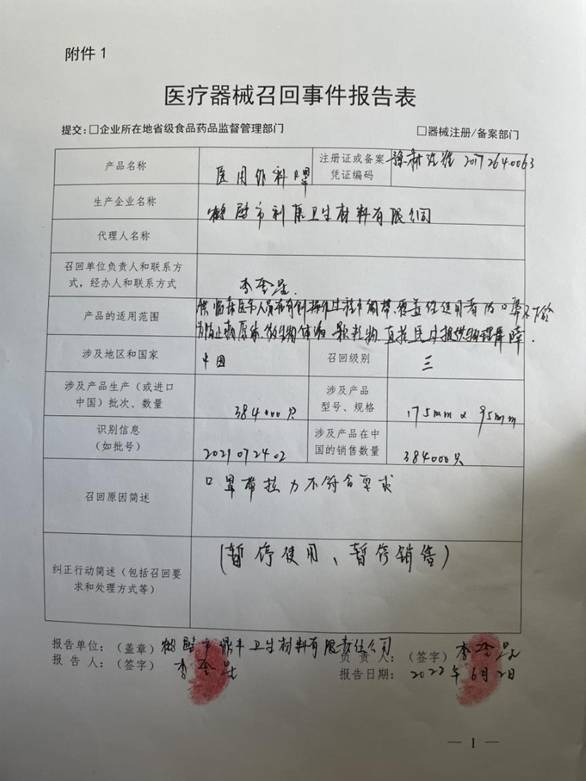 附件 1
医疗器械召回事件报告表
提交：□企业所在地省级食品药品监督管理部门 □器械注册/备案部门
产品名称 医用外科口罩 注册证或备案凭证编码 20172640063
生产企业名称 市利康卫生材料有限公司
代理人名称
召回单位负责人和联系方式，经办人和联系方式 李
产品的适用范围 供临床医务人员在有创操作过程中佩带，覆盖住使用者的口鼻及下颌
防止病原体微生物体液 颗粒物 直接透过提供物理屏障.
涉及地区和国家 中国 召回级别 三
涉及产品生产（或进口中国）批次、数量 384000只 涉及产品型号、规格 175mm x 95mm
识别信息（如批号） 2021072402 涉及产品在中国的销售数量 384000只
召回原因简述 口罩带拉力不符合要求
纠正行动简述（包括召回要求和处理方式等） (暂停使用、暂停销售)
报告单位：（盖章） 市 卫生材料有限责任公司
负 责 人：（签字） 李
报 告 人：（签字） 李
报告日期： 2022年6月2日
— 1 —